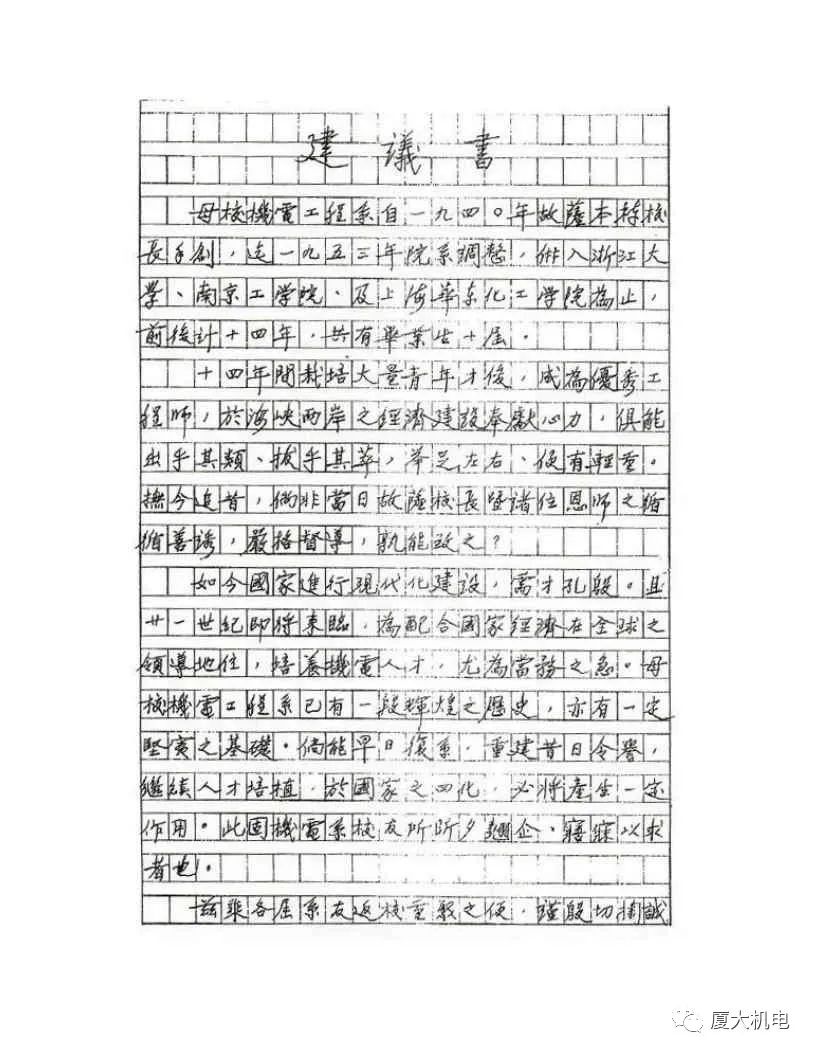 建議書
母校機電工程系自一九四〇年故薩本棟校
長手創，迄一九五三年院系調整，併入浙江大
學、南京工學院、及上海華東化工學院為止，
前後計十四年，共有畢業生十屆。
十四年間栽培大量青年才俊，成為優秀工
程師，於海峽兩岸之經濟建設奉獻心力，俱能
出乎其類、拔乎其萃，举足左右、便有輕重。
撫今追昔，倘非當日故薩校長暨諸位恩師之循
循善誘，嚴格督導，孰能致之？
如今國家進行現代化建設，需才孔殷。且
廿一世紀即將來臨，為配合國家經濟在全球之
領導地位，培養機電人才，尤為當務之急。母
校機電工程系已有一段輝煌之歷史，亦有一定
堅實之基礎。倘能早日復系，重建昔日令譽，
繼續人才培植，於國家之四化，必將產生一定
作用。此固機電系校友所昕夕翹企、寤寐以求
者也。
茲乘各屆系友返校重聚之便，謹殷切摛誠
厦大机电